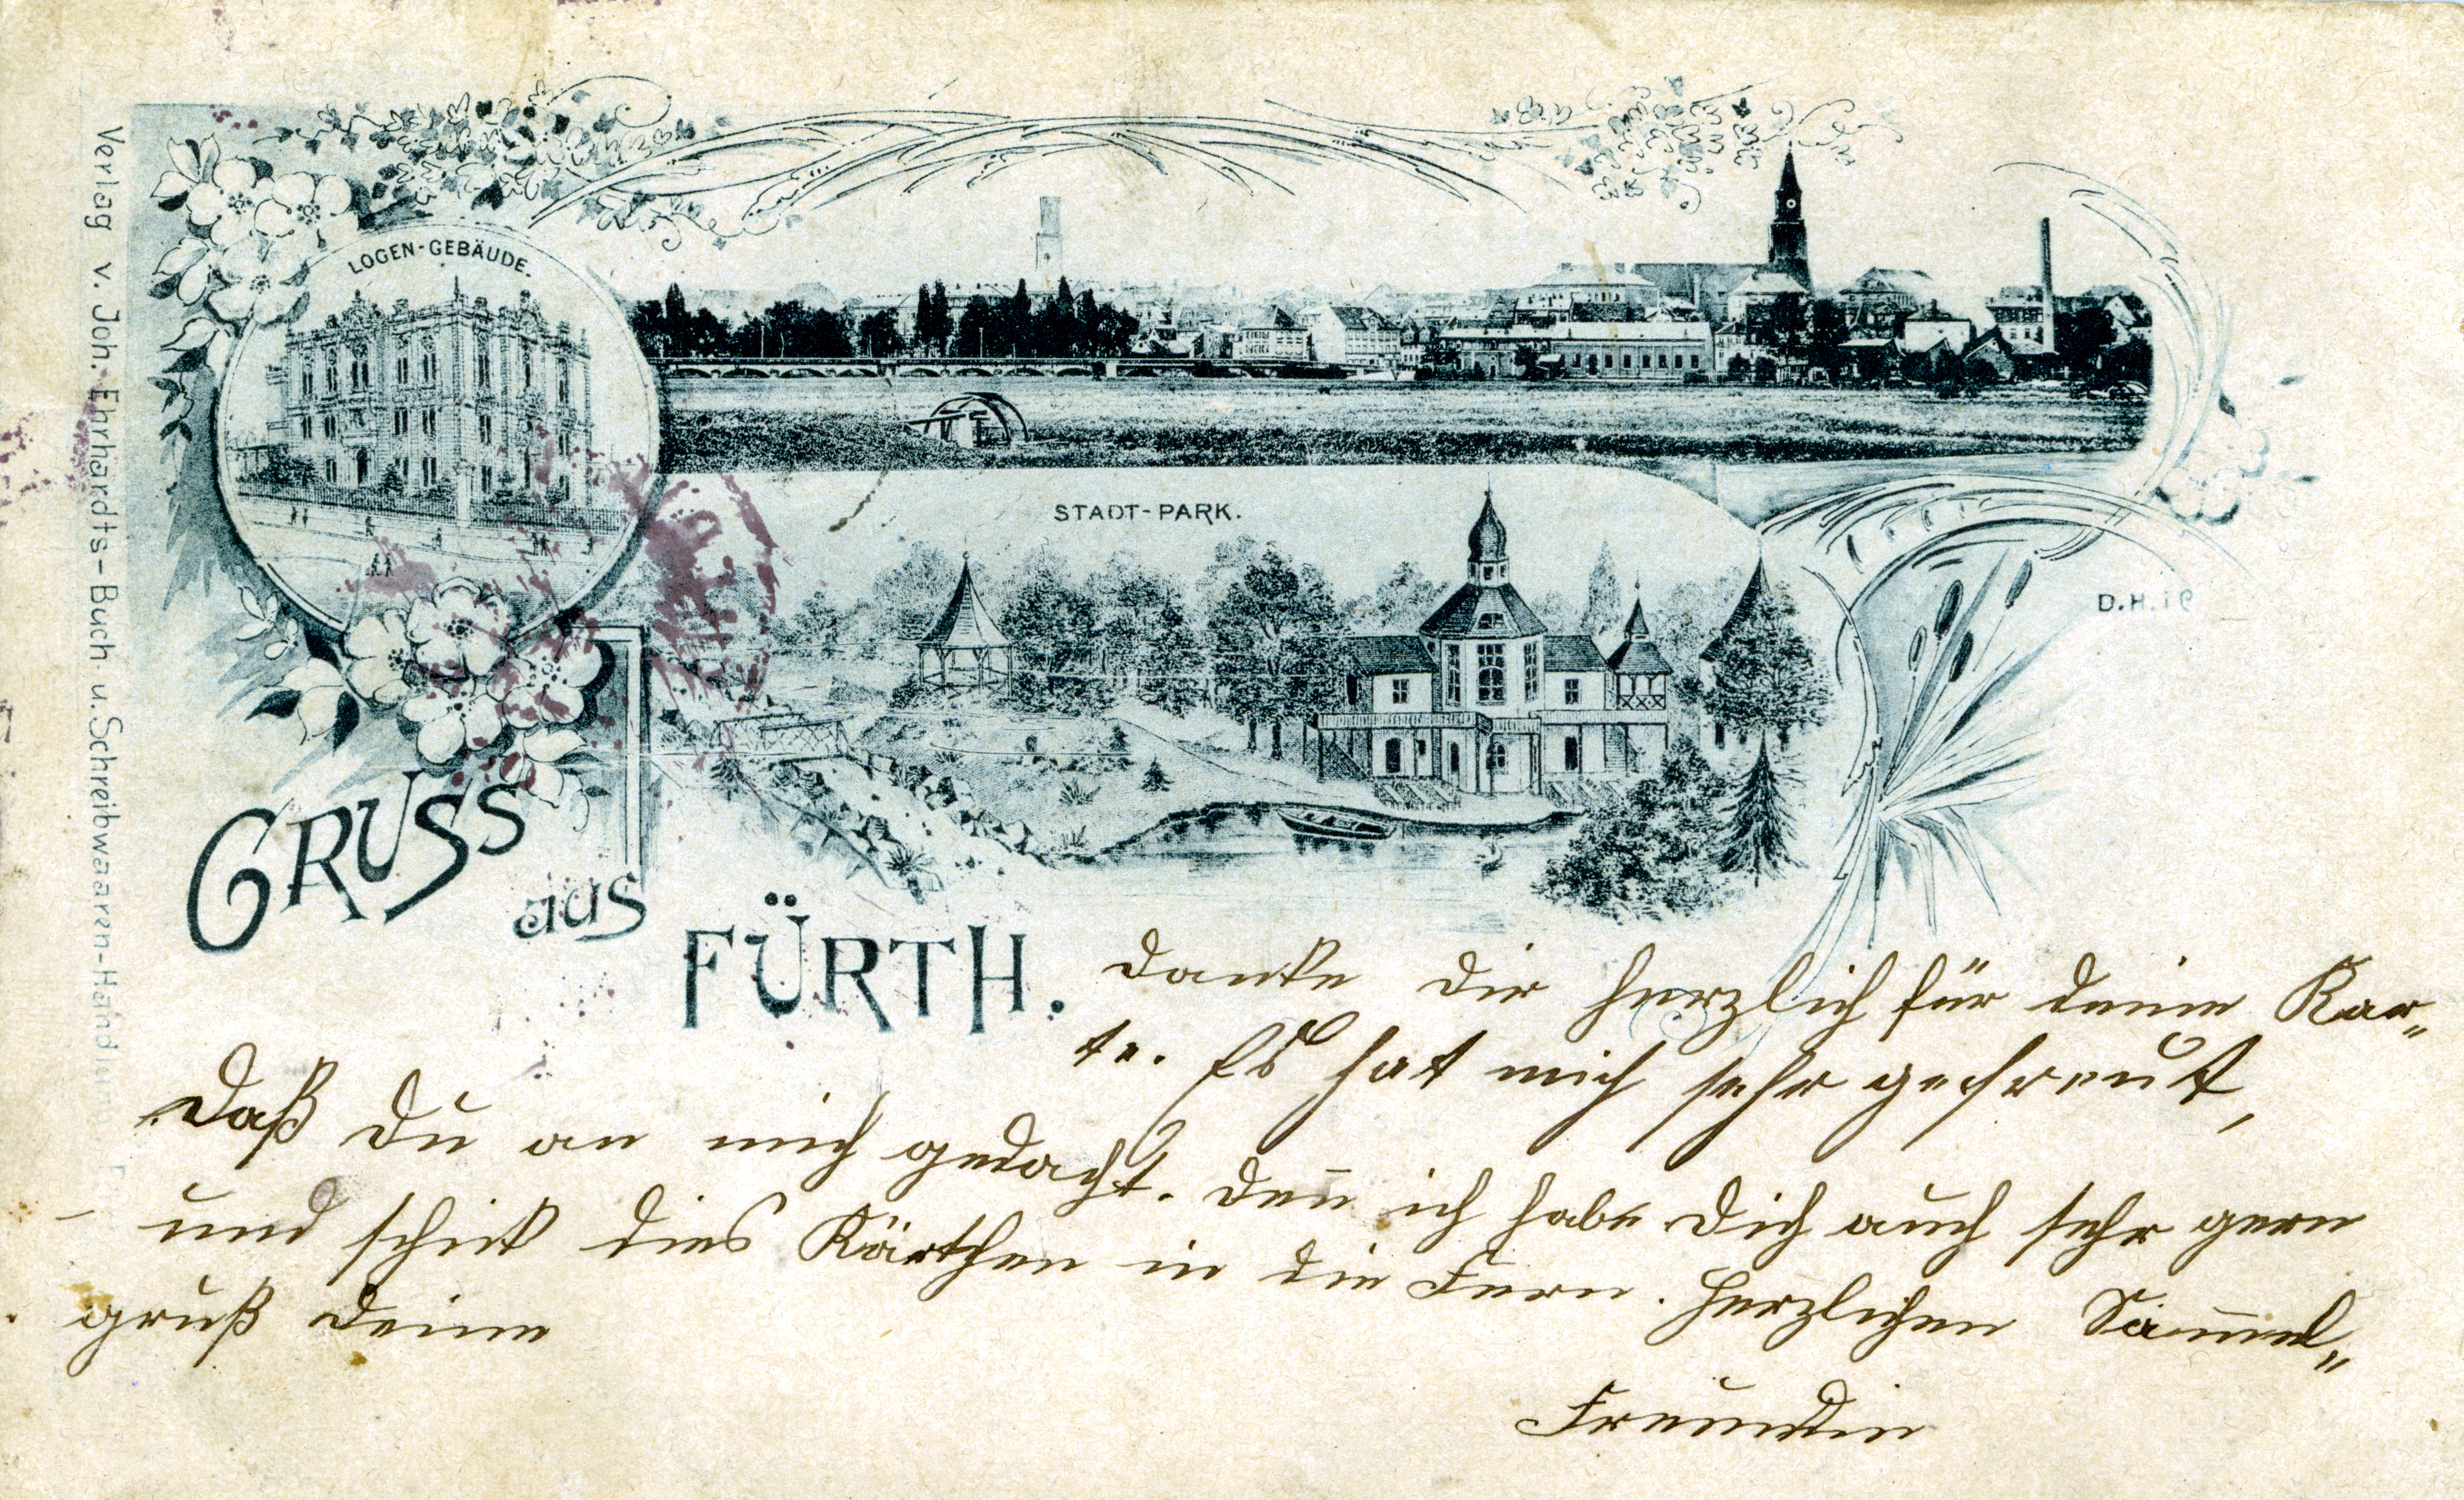 Verlag v. Joh. Ehrhardts-Buch u. Schreibwaaren-Handlung
LOGEN-GEBÄUDE.
STADT-PARK.
D.H.i
GRUSS
aus
FÜRTH.
Danke Dir herzlich für deine Kar„
te. Es hat mich sehr gefreut,
Daß Du an mich gedacht. Den̅ ich habe Dich auch sehr gern
und schick dies Kärtchen in die Fern. Herzlichen Sam̅el„
gruß Deine
Freundin